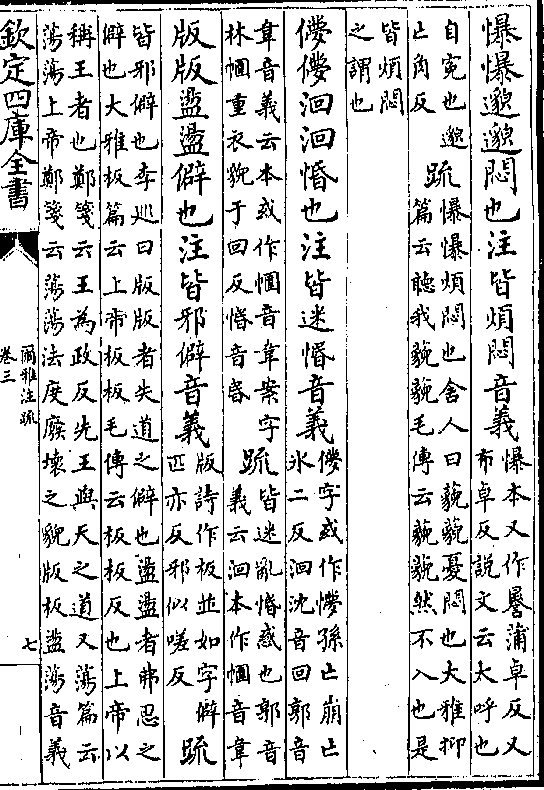 懪懪邈邈悶也注皆煩悶音義懪本又作㬧蒲卓反又
布卓反說文云大呼也
自寃也邈
亡角反疏懪懪煩悶也舍人曰藐藐憂悶也大雅抑
篇云聽我藐藐毛傳云藐藐然不入也是
皆煩悶
之謂也
儚儚洄洄惛也注皆迷惛音義儚字或作懜孫亡崩亡
氷二反洄沈音回郭音
韋音義云本或作㥜音韋案字
林㥜重衣貌于回反惛音昏疏皆迷亂惛惑也郭音
義云洄本作㥜音韋
版版盪盪僻也注皆邪僻音義版詩作板並如字僻
匹亦反邪似嗟反疏
皆邪僻也李巡曰版版者失道之僻也盪盪者弗忍之
僻也大雅板篇云上帝板板毛傳云板板反也上帝以
稱王者也鄭箋云王為政反先王與天之道又蕩篇云
蕩蕩上帝鄭箋云蕩蕩法度廢壞之貌版板盪蕩音義
欽定四庫全書
爾雅注疏
卷三
七